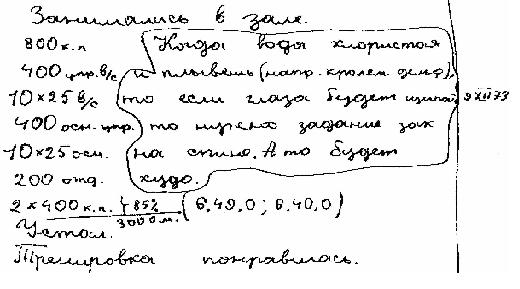 Занимались в зале.
800 к.п Когда вода хлористая
400 упр. в/с и плывешь (напр. кролем, дельф),
10×25 в/с то если глаза будет щипать 9 XII 73
400 осн. упр. то нужно задание зак
10×25 осн. на спине. А то будет
200 отд. худо.
2×400 к.п. } 85% (6,49,0 ; 6,40,0)
3000 м.
Устал.
Тренировка понравилась.